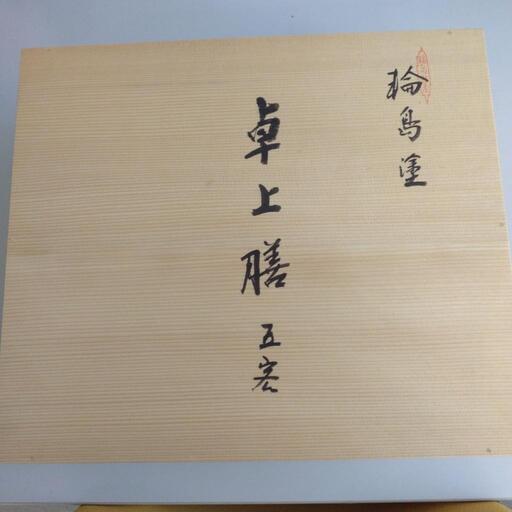 輪島塗
卓上膳 五客